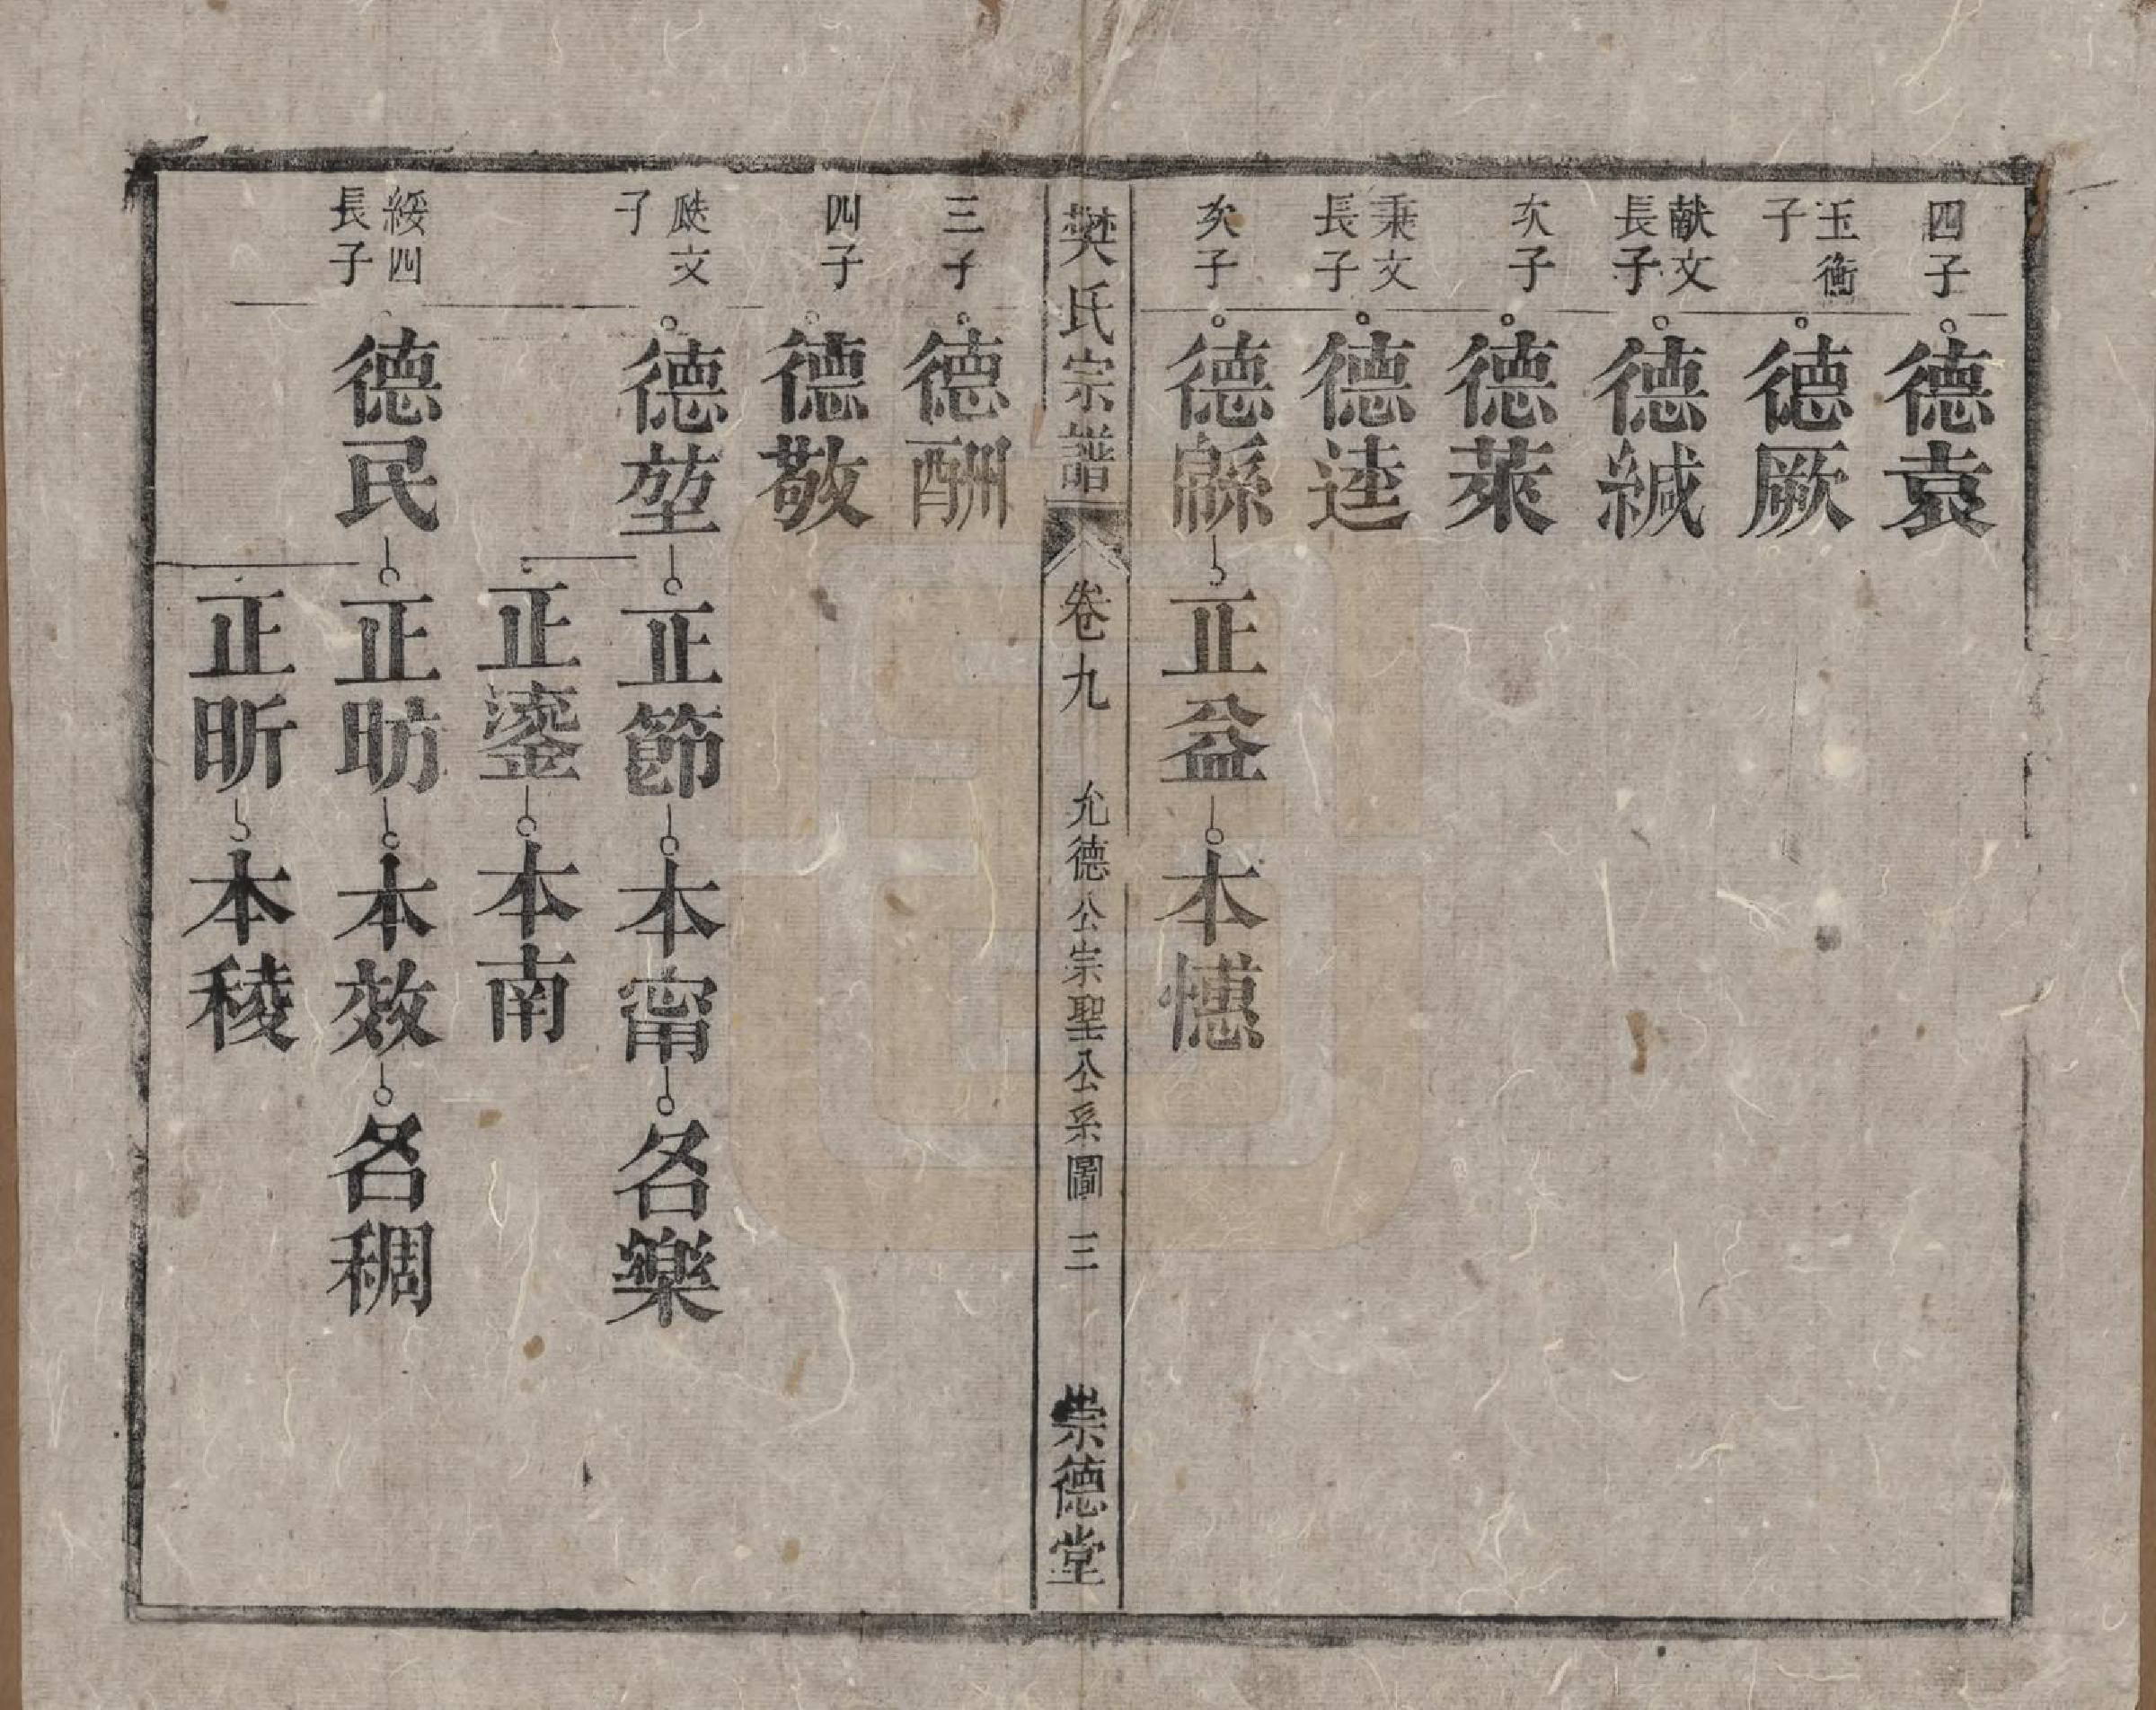 四子
德袁
玉衡子
德厥
献文長子
德緘
次子
德萊
秉文長子
德逵
次子
德緜
正益
本憓
樊氏宗譜
卷九
允德公宗聖公系圖
三
崇德堂
三子
德酬
四子
德敬
文子
德堃
正節
本甯
名樂
正鎏
本南
綏四長子
德民
正昉
本效
名稠
正昕
本稜